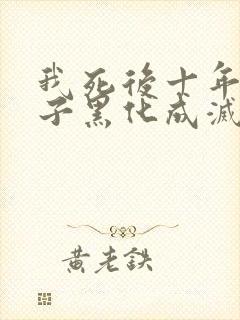 我死後十年
子黑化成滅
黃老鉄